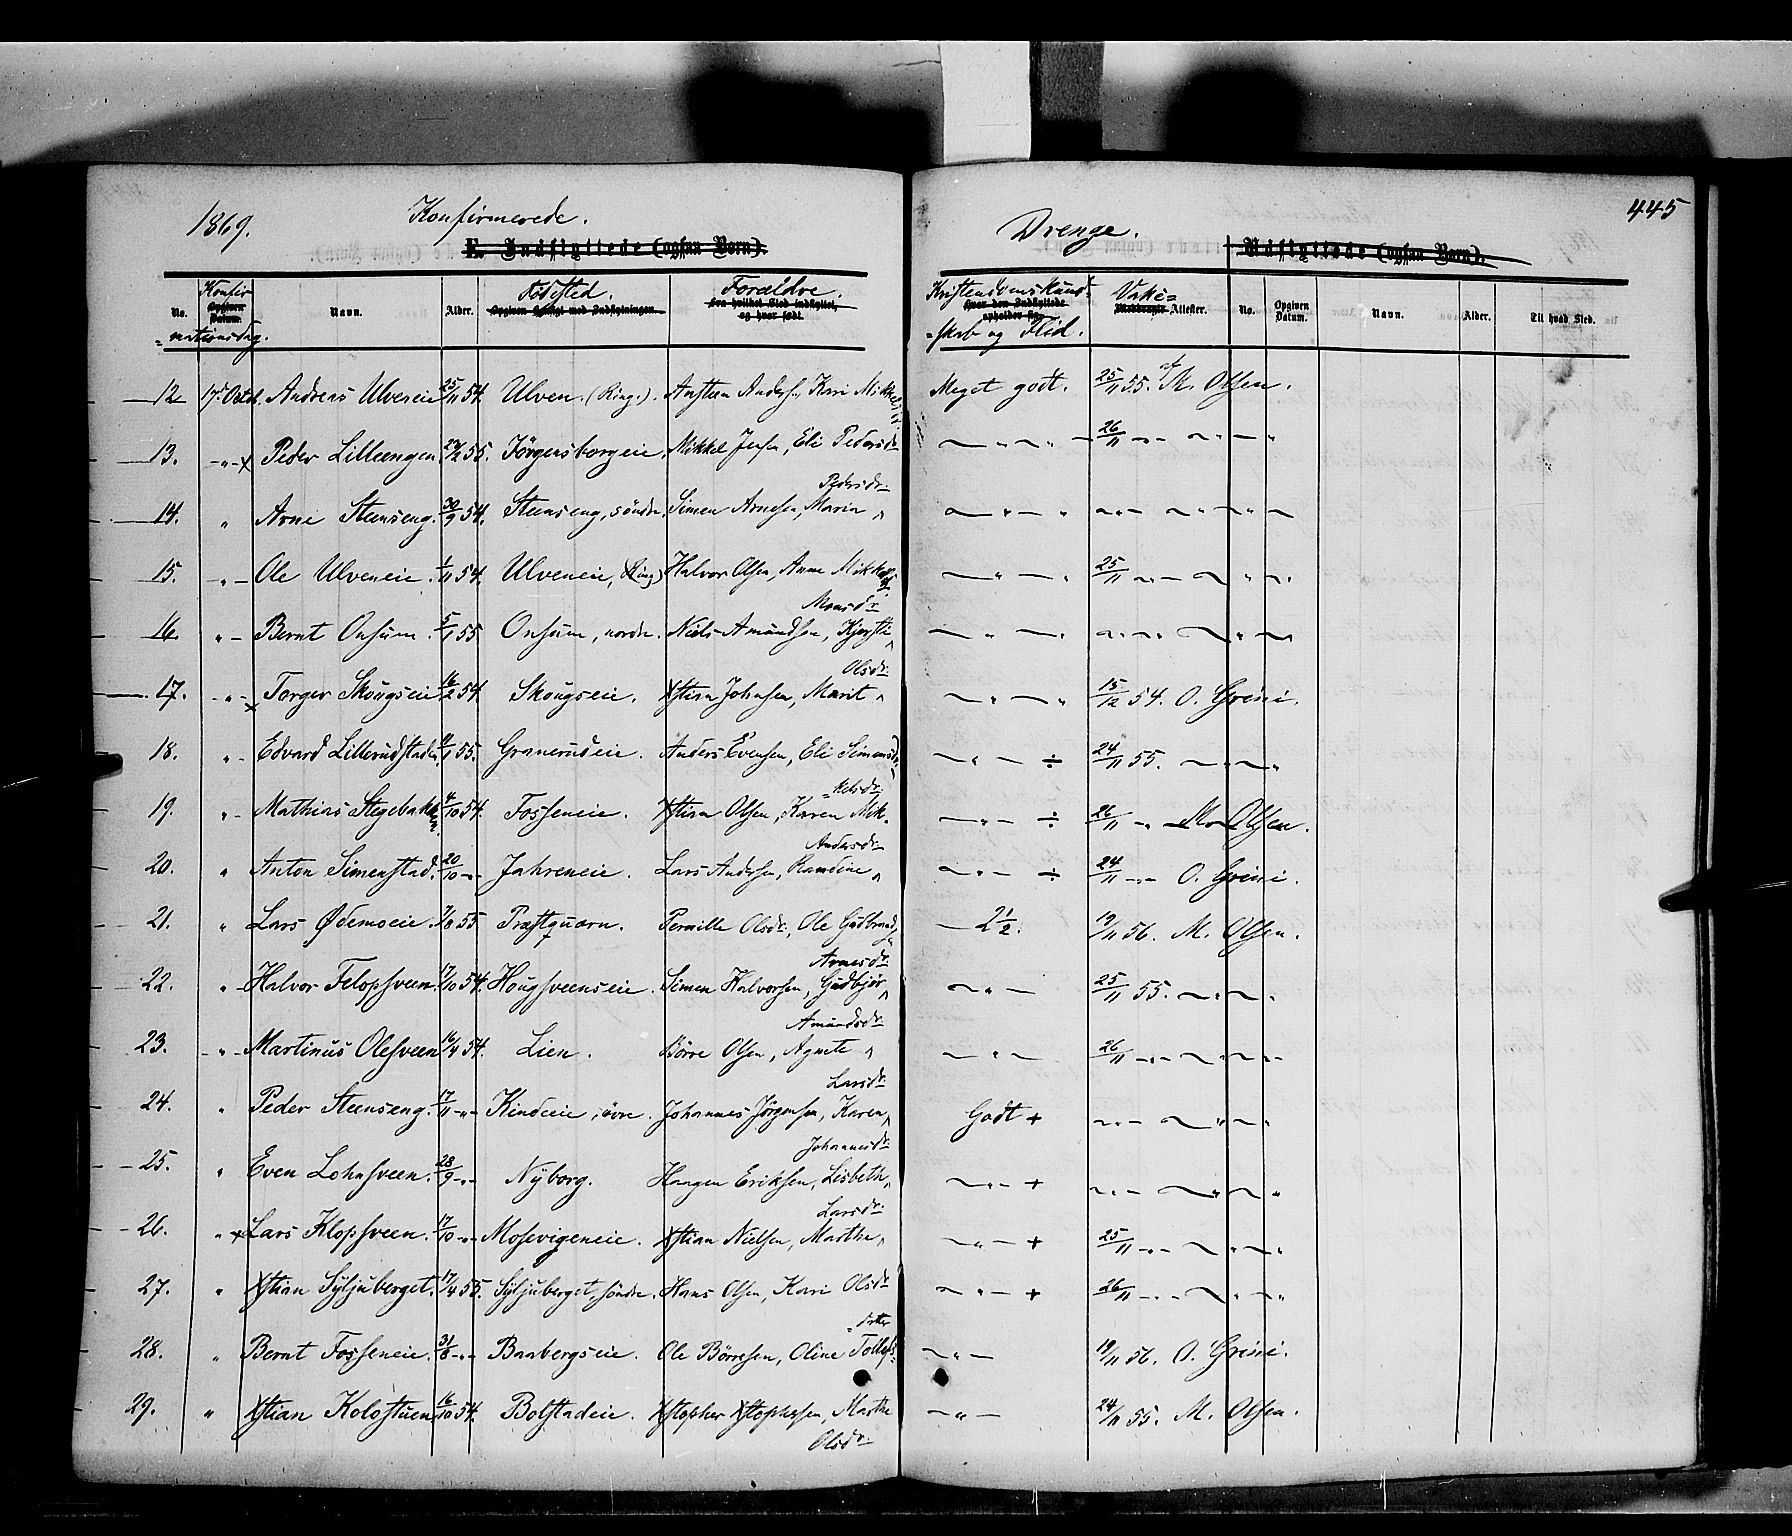 1869. Konfirmerede. Drenge. 445
E. Indflyttede (ogsaa Børn). Udflyttede (ogsaa Børn).
No. Konfirmationsdag. Opgiven Datum. Navn. Alder. Födested. Forældre. Kristendomskundskab og Flid. Vakc= Attester. No. Opgiven Datum. Navn. Alder. Til hvad Sted.
12 17de Octob. Andreas Ulveneie 25/11 54. Ulven. (Ring.). Austen Anders., Kari Mikkelsd. Meget godt. 25/11 55. af M. Olsen.
13. - " - x Peder Lilleengen. 55. Jörgensborgeie. Mikkel Jensen, Eli Pedersdr. — " — " — 26/11 - " - — " — "
14. " Arne Steenseng. 30/9 54. Steenseng, söndre. Simen Arnesen, Maria Pedersdr. — " — " - " - — " — " —
15. " - Ole Ulveneie. 1/11 54. Ulveneie, (Ring) Halvor Olsen, Anne Mikkelsd. — " — " 25/11 - " - — " — "
16. " - Bernt Onsum. 5/1 55 Onsum, nordre. Niels Amundsen, Kjersti Monsdr. — " — " - " - — " — "
17. - " - x Torger Skougseie 16/2 54. Skougseie. Xstian Johnsen, Marit Olsdr. — " — " 15/12 54. O. Greini.
18. " - Edvard Lillerudstaden. 55. Granerudeie. Anders Evensen, Eli Simensd. — " — ÷ 24/11 55. — " — "
19. " - Mathias Stegebakken 4/10 54. Fosseneie. Xstian Olsen, Karen Mikkelsdr. — " — ÷ 26/11 - " - M. Olsen.
20. " Anton Simenstad. 20/10 - " - Jahreneie. Lars Andersen, Randine Andersdr. — " — ÷ 24/11 - " - O. Greini.
21. " Lars Ødemoeie. 55 Præstquærn. Pernille Olsdr., Ole Gudbrands. — 2 1/2. 19/11 56. M. Olsen.
22. " - Halvor Felopsveen. 17/10 54. Hougsveenseie. Simen Halvorsen, Gudbjør Arnesdr. — " — 25/11 55. — " — "
23. - " - Martinus Olesveen 16/4 54. Lien. Börre Olsen, Agnete Amundsdr. — " — 26/11 - " - — " — "
24. " Peder Steenseng. 17/11 - " - Kindeie, övre. Johannes Jörgensen, Karen Larsdr. Godt + - " - — " — "
25. " Even Lohnsveen. 28/9 - " - Nyborg. Haagen Eriksen, Lisbeth Johannesdr. — " — + - " - — " — "
26. " x Lars Klopsveen. 17/10 - " - Mosevigeneie. Xstian Nielsen, Marthe Larsdr. — " — + 25/11 - " - — " — "
27. " Xstian Syljuberget. 17/4 55. Syljuberget, söndre. Hans Olsen, Kari Olsdr. — " — + 26/11 - " - — " — "
28. " Bernt Fosseneie. 31/8 - " - Baabergseie. Ole Börresen, Oline Tollefsdotter — " — 19/11 56. O. Greini.
29. " Xstian Kolostuen 16/10 54. Bolstadeie. Xstopher Xstophersen, Marthe Olsdr. — " — 24/11 55. M. Olsen.